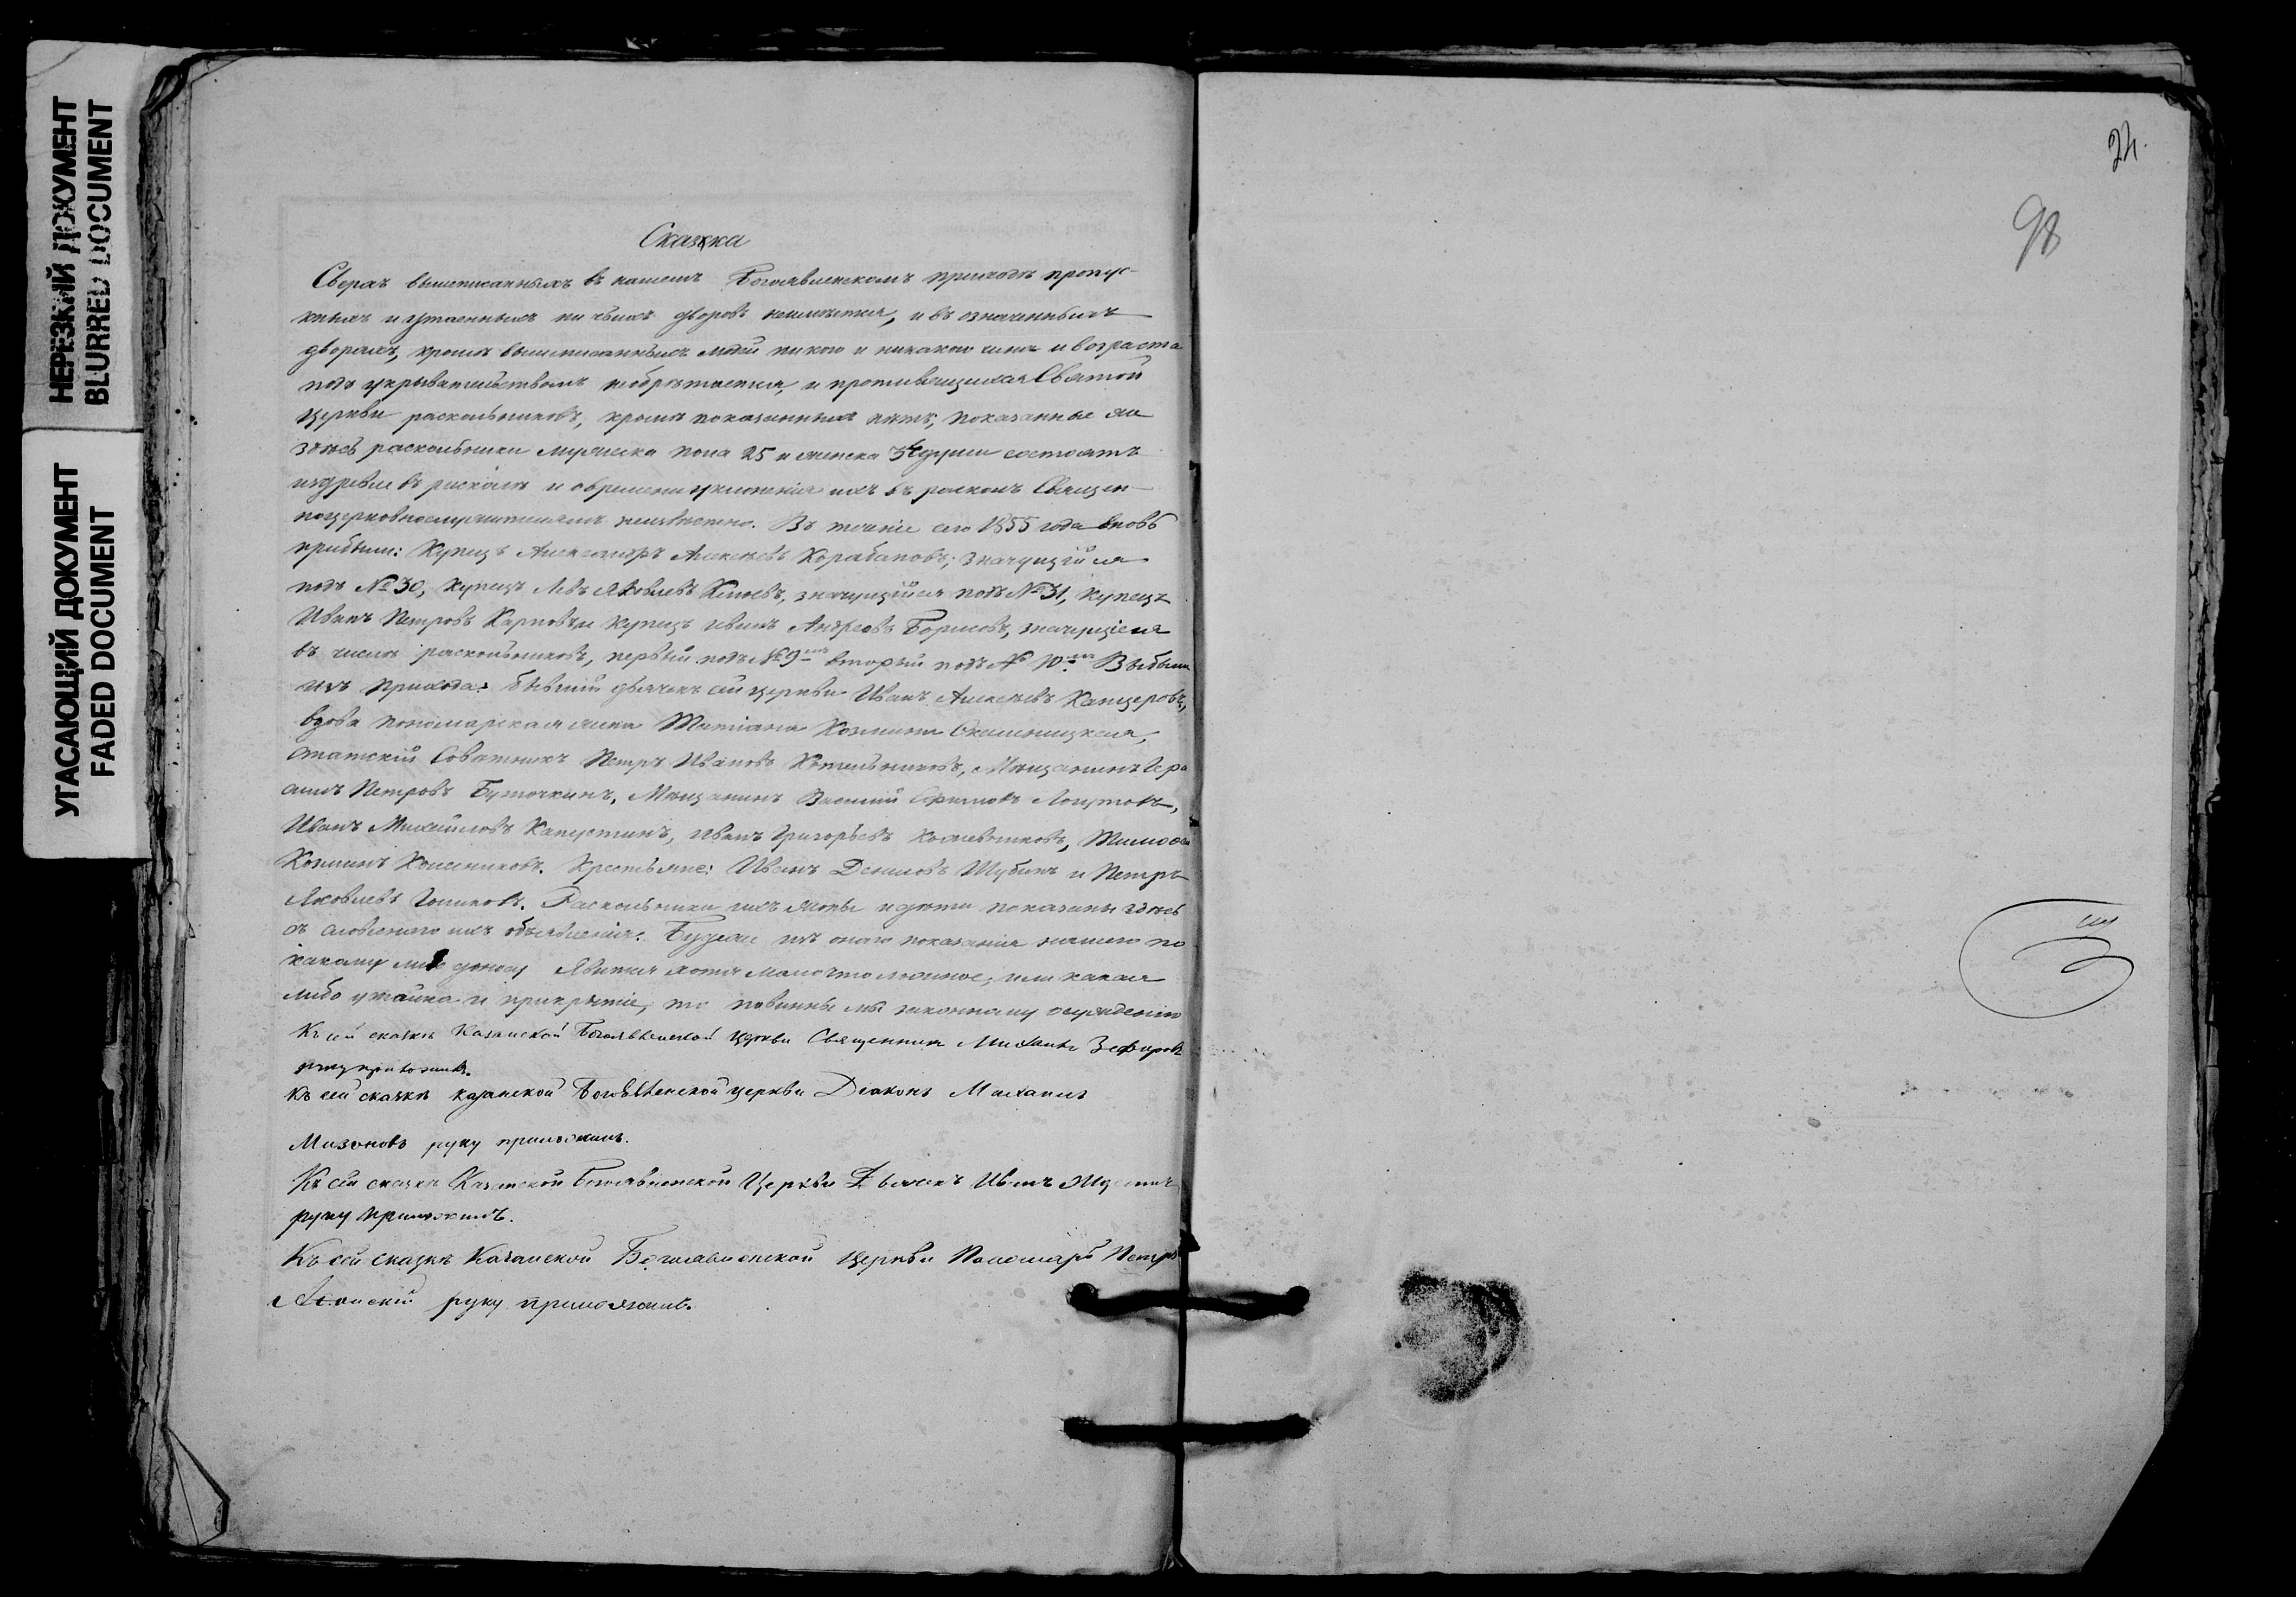 НЕРЕЗКИЙ ДОКУМЕНТ
BLURRED DOCUMENT
УГАСАЮЩИЙ ДОКУМЕНТ
FADED DOCUMENT
24.
98
Сказка
Сверхъ вышеписанныхъ въ нашемъ Богоявленскомъ приходѣ пропус-
кныхъ и утаенныхъ ни чьихъ дворовъ неимѣется, и въ означенныхъ
дворахъ, кромѣ вышеписанныхъ людей никого и никакого чина и возраста
подъ укрывательствомъ необрѣтается, и противящихся Святой
Церкви раскольниковъ, кромѣ показанныхъ нѣтъ; показанные же
здѣсь раскольники мужеска пола 25 и женска души состоятъ
издревле въ расколѣ и о времени уклоненія ихъ въ расколъ Священ-
ноцерковнослужителямъ неизвѣстно. Въ теченіе сего 1855 года вновь
прибыли: Купецъ Александръ Алексѣевъ Корабановъ, значущійся
подъ № 30, купецъ Левъ Яковлевъ значущійся подъ № 31, купецъ
Иванъ Петровъ Карповъ и купецъ Иванъ Андреевъ Борисовъ, значущіеся
въ числѣ раскольниковъ, первый подъ № 9мъ второй подъ № 10мъ Выбыли
изъ прихода: бывшій дьячекъ сей церкви Иванъ Алексѣевъ Канцеровъ,
вдова пономарская жена Татіана Козмина
статскій Совѣтникъ Петръ Ивановъ Котельниковъ, Мѣщанинъ Гера
симъ Петровъ Буточкинъ, Мѣщанинъ Василій Ефимовъ
Иванъ Михайловъ Капустинъ, Иванъ Григорьевъ Кожевниковъ, Тимофей
Козминъ Колесниковъ. Крестьяне: Иванъ Даниловъ Шубинъ и Петръ
Яковлевъ Раскольники ихъ жены и дѣти показаны здѣсь
съ словеснаго ихъ объявленія. Будеже изъ онаго показанія нашего по
какому либо доносу явится хотя мало что ложное, или какая
либо утайка и прикрытіе, то повинны мы законному осужденію
Къ сей сказкѣ Казанской Богоявленской церкви Священникъ Михаилъ Зефировъ
руку приложилъ.
Къ сей сказкѣ казанской Богоявленской церкви Діаконъ Михаилъ
Мизоновъ руку приложилъ.
Къ сей сказкѣ Казанской Богоявленской Церкви Дьячекъ Иванъ
руку приложилъ.
Къ сей сказкѣ Казанской Богоявленской церкви Пономарь Петръ
руку приложилъ.